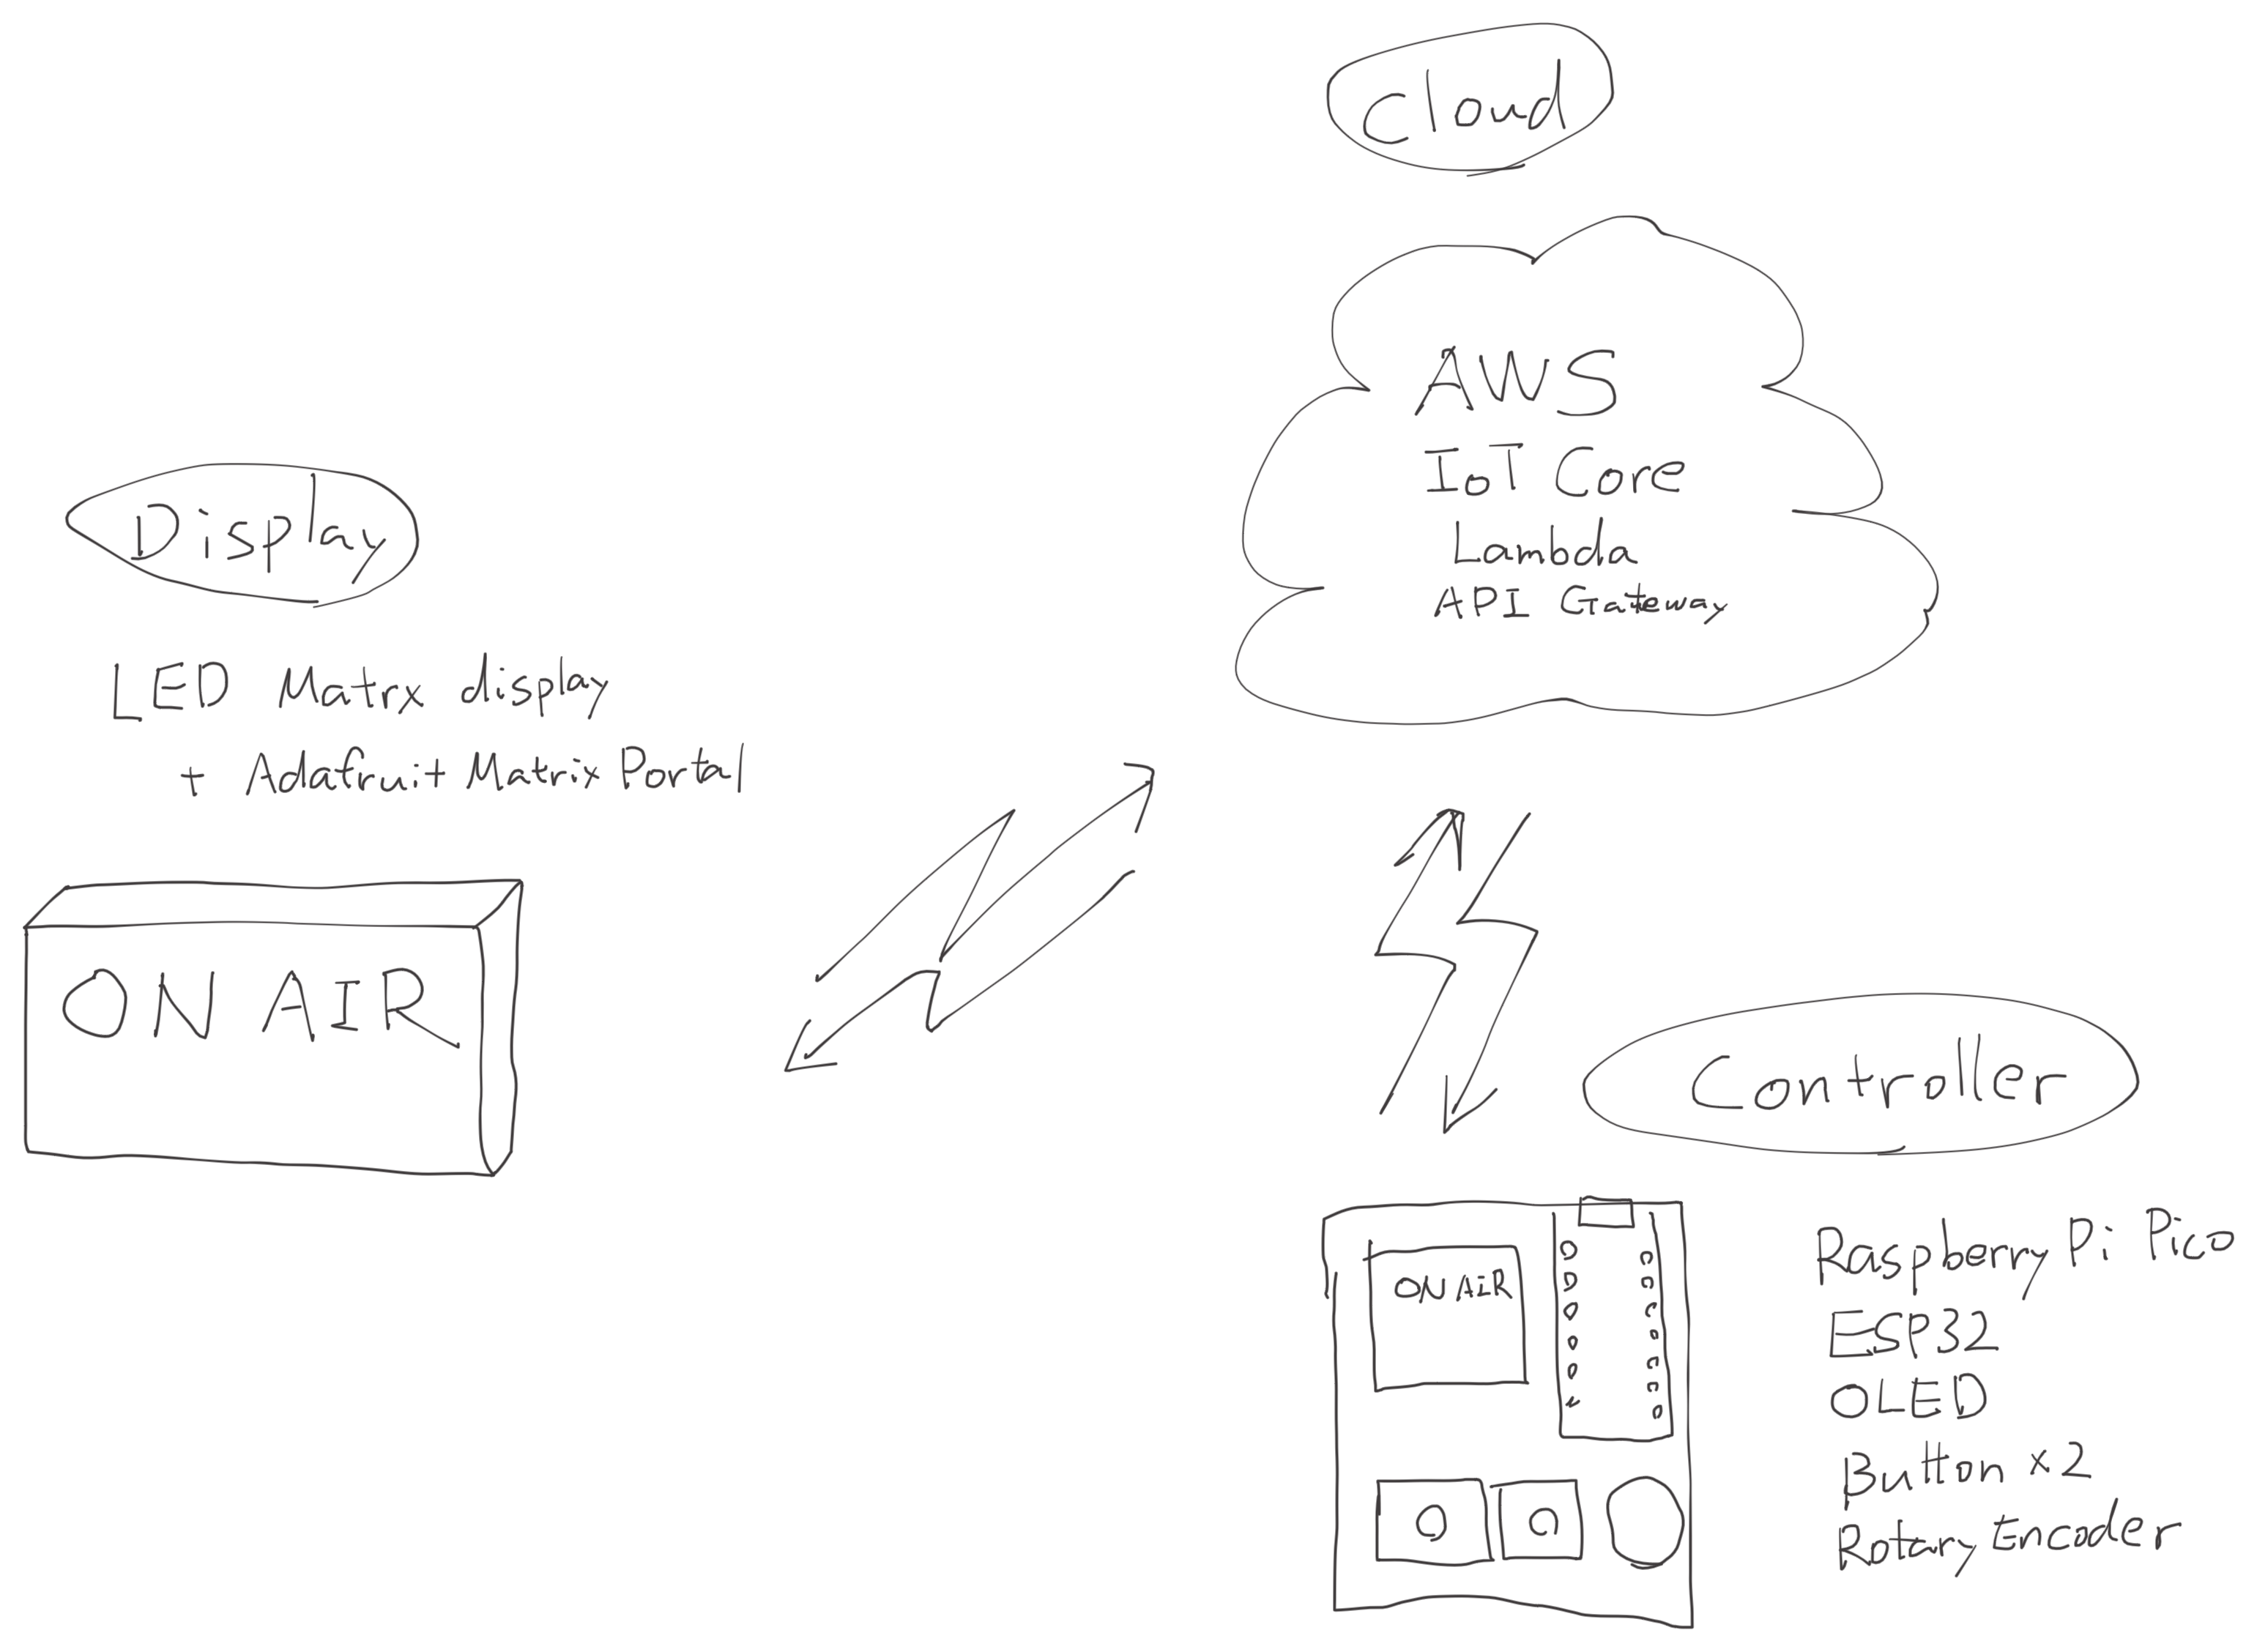 Cloud
AWS
IoT Core
Lambda
API Gateway
Display
LED Matrx display
+ Adafruit Matrix Portal
ON AIR
Controller
ON AIR
Raspberry Pi Pico
ESP32
OLED
Button x2
Rotary Encoder